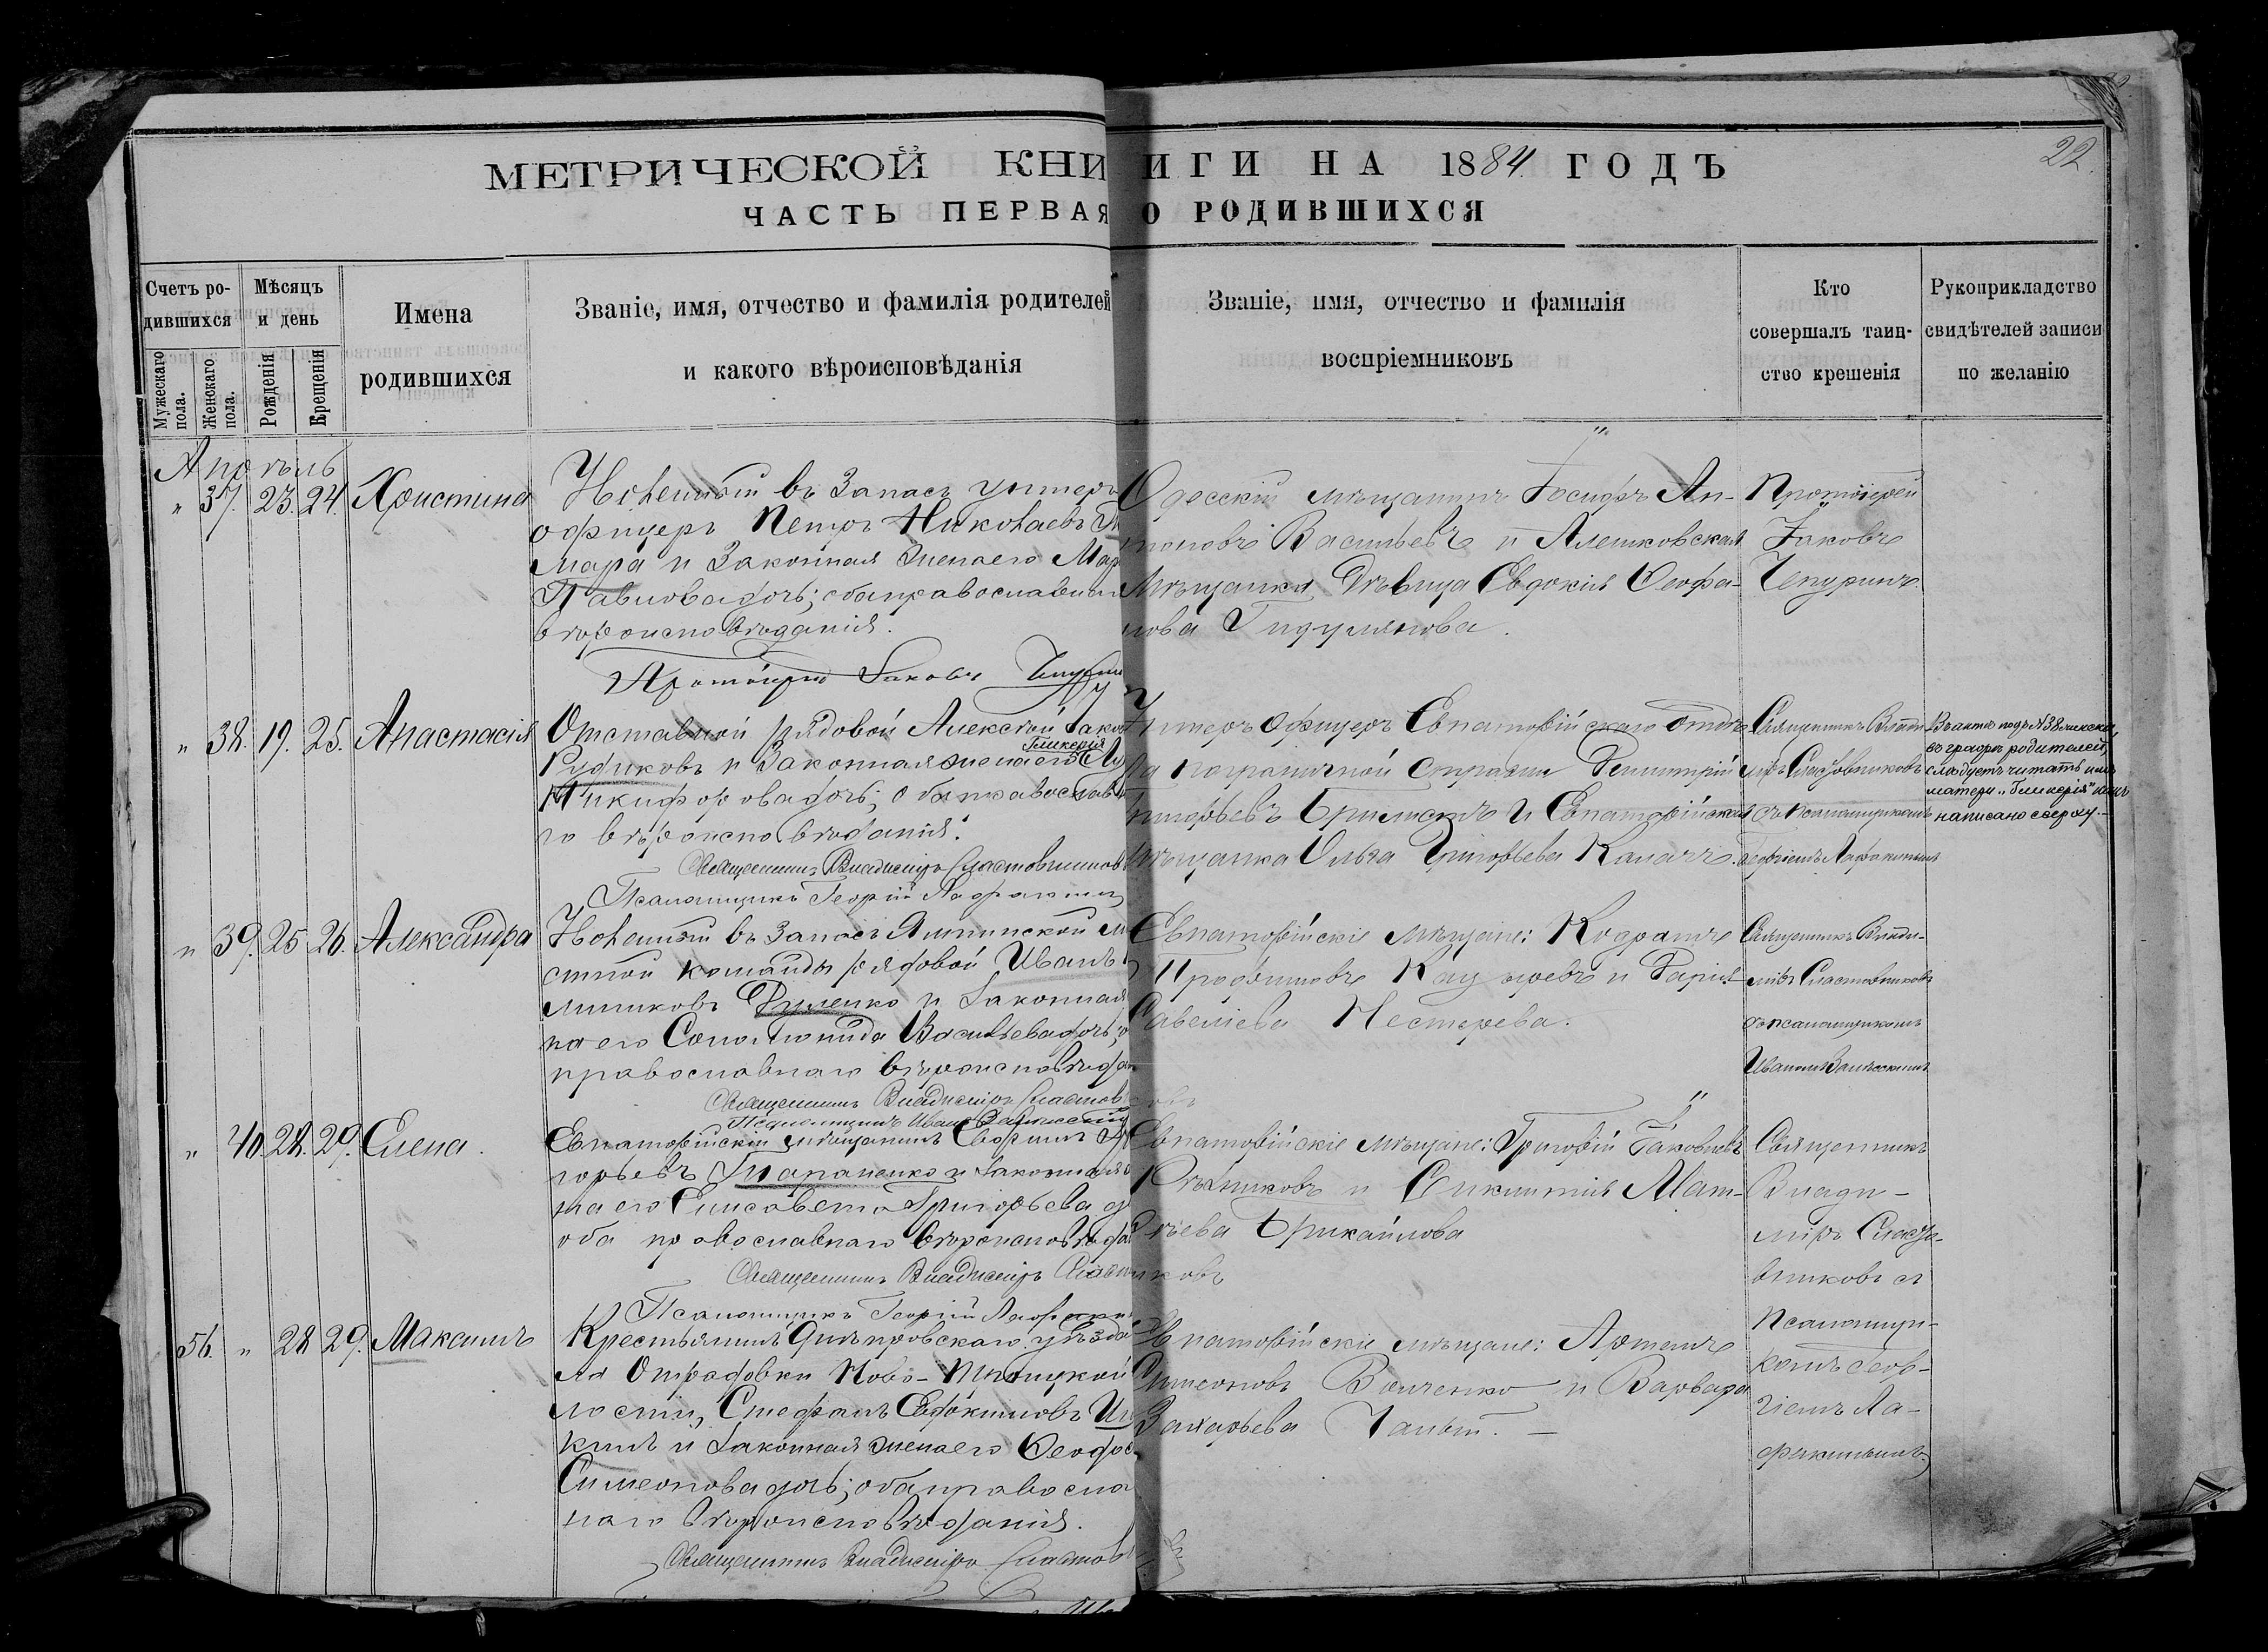 22.
МЕТРИЧЕСКОЙ КНИГИ НА 1884 ГОДЪ
ЧАСТЬ ПЕРВАЯ О РОДИВШИХСЯ
Счетъ родившихся
Мужескаго пола.
Женскаго пола.
Мѣсяцъ и день
Рожденія
Крещенія
Имена
родившихся
Званіе, имя, отчество и фамилія родителей
и какого вѣроисповѣданія
Званіе, имя, отчество и фамилія
воспріемниковъ
Кто
совершалъ таин-
ство крещенія
Рукоприкладство
свидѣтелей записи
по желанію
Апрѣль
" 37. 23. 24. Христина
Уволенный въ запасъ унтеръ
офицеръ Петръ Николаевъ
мара и законная жена его Мар
Павлова дочь; оба православнаго
вѣроисповѣданія.
Протоіерей Іаковъ Чепурин
Одесскій мѣщанинъ Іосифъ Ан-
тоновъ Васильевъ и Алешковская
мѣщанка дѣвица Евдокія Ѳеофа-
нова Гидулянова.
Протоіерей
Іаковъ
Чепуринъ.
" 38. 19. 25. Анастасія
Отставной рядовой Алексѣй Іаков
Рудиковъ и законная жена его
Гликерія
Никифорова дочь; оба православна
го вѣроисповѣданія.
Священникъ Владиміръ Сластовников
Псаломщикъ Георгій Лафакинъ
Унтеръ офицеръ Евпаторійскаго отдѣ
ла пограничной стражи Димитрій
Григорьевъ и Евпаторійская
мѣщанка Ольга Григорьева Капачъ.
Священникъ Влади
міръ Сластовниковъ
съ псаломщикомъ
Георгіемъ Лафакинымъ
Въ актѣ подъ №38 женска,
въ графѣ родителей,
слѣдуетъ читать имя
матери „Гликерія" какъ
написано сверху.
" 39. 25. 26. Александра
Уволенный въ запасъ Ялтинской м
стной команды рядовой Иванъ
линиковъ Руленко и законная
на его Соломонида Васильева дочь; о
православнаго вѣроисповѣдан
Священникъ Владиміръ Сластов
Псаломщикъ Иванъ Залѣсскій
Евпаторійскіе мѣщане: Кодратъ
Трофимовъ и Дарія
Савеліева Нестерева.
Священникъ Влади-
міръ Сластовниковъ
съ псаломщикомъ
Иваномъ Залѣсскимъ
" 40. 28. 29. Елена.
Евпаторійскій мѣщанинъ Гр
горьевъ Тарапенко и законная
на его Елисавета Григорьева д
оба православнаго вѣроисповѣда
Священникъ Владиміръ Сластовниковъ
Псаломщикъ Георгій Лафакин
Евпаторійскіе мѣщане: Григорій Іаковлевъ
Рѣзниковъ и Мат-
вѣева Брикайлова
Священникъ
Влади-
міръ Сласто-
вниковъ съ
псаломщи-
комъ Геор-
гіемъ Ла-
факинымъ
56. " 28 29. Максимъ
Крестьянинъ Днѣпровскаго уѣзда
ла Отрадовки Ново-Троицкой
лости, Стефанъ Евфимовъ
кинъ и законная жена его Ѳеодос
Симеонова дочь; оба православ
наго вѣроисповѣданія.
Священникъ Владиміръ Сластов
Евпаторійскіе мѣщане: Артемъ
Симеоновъ Вовченко и Варвара
Захарьева